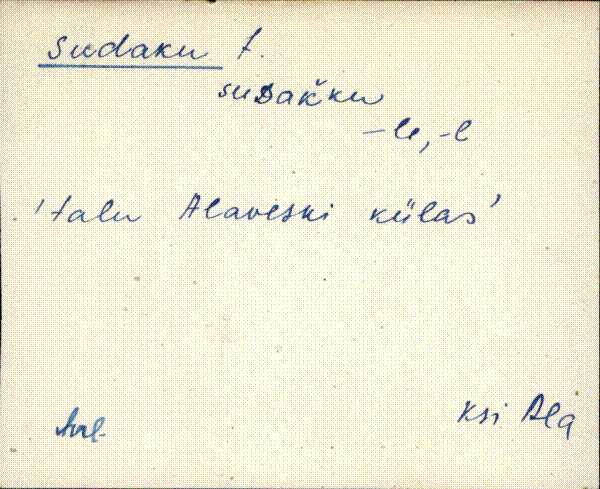 Sudaku t.
suDak̆ku
-le, -l
'talu Alaveski külas'
Ksi Ala